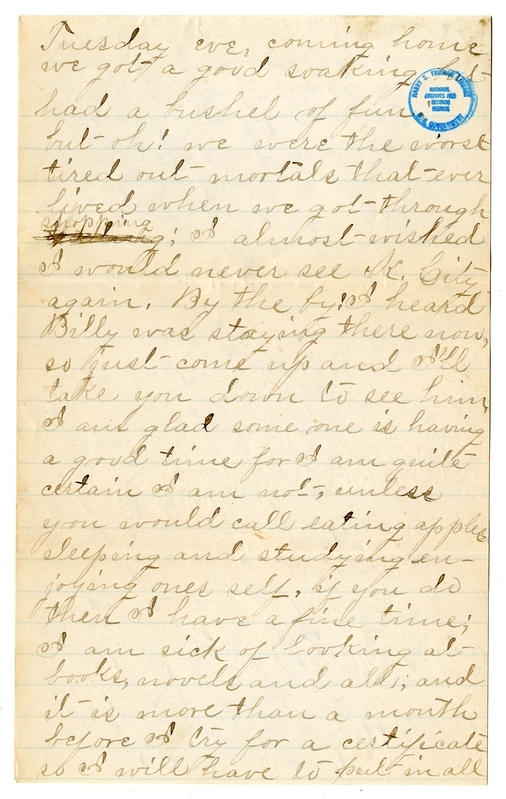 Tuesday eve, coming home
we got a good soaking but
had a bushel of fun
but oh! we were the worst
tired out mortals that ever
lived when we got through
shopping
; I almost wished
I would never see K. City
again. By the by! I heard
Billy was staying there now,
so just come up and I'll
take you down to see him,
I am glad some one is having
a good time for I am quite
certain I am not, unless
you would call eating apples
sleeping and studying en-
joying ones self, if you do
then I have a fine time;
I am sick of looking at
books, novels and all; and
it is more than a month
before I try for a certificate
so I will have to put in all
HARRY S. TRUMAN LIBRARY
NATIONAL
ARCHIVES AND
RECORDS
SERVICE
U.S. GOVERNMENT